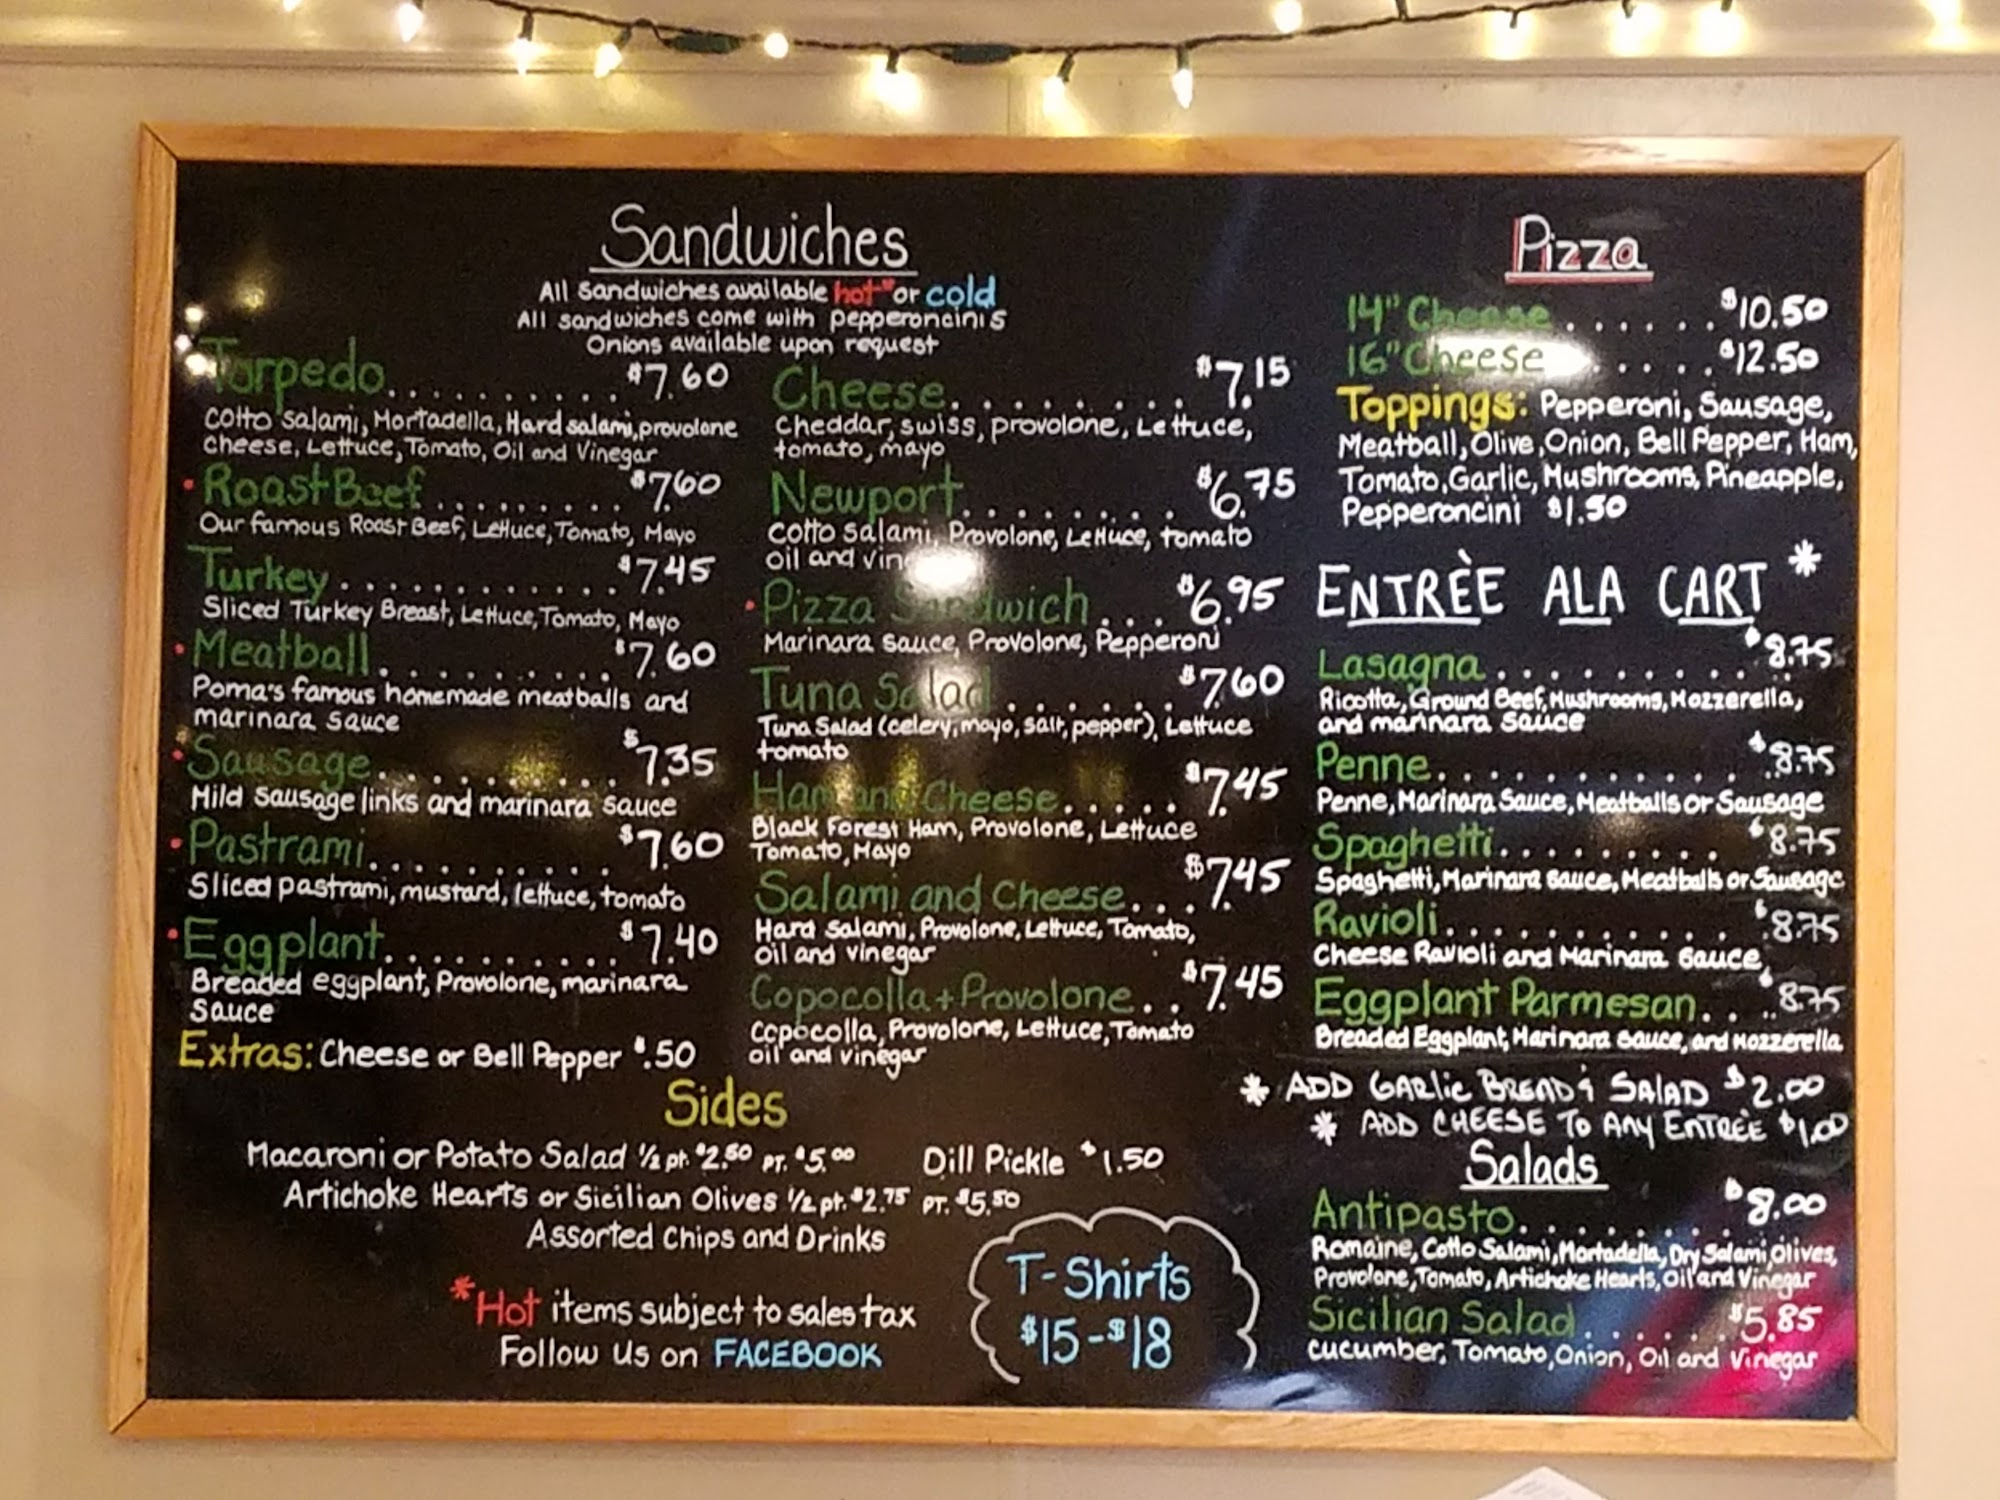 Sandwiches
All sandwiches available hot* or cold
All sandwiches come with pepperoncinis
Onions available upon request
Torpedo.......... $7.60
Cotto salami, Mortadella, Hard salami, provolone
Cheese, Lettuce, Tomato, Oil and Vinegar
• Roast Beef......... $7.60
Our famous Roast Beef, Lettuce, Tomato, Mayo
Turkey............ $7.45
Sliced Turkey Breast, Lettuce, Tomato, Mayo
• Meatball.......... $7.60
Poma's famous homemade meatballs and
marinara sauce
• Sausage.......... $7.35
Mild sausage links and marinara sauce
• Pastrami.......... $7.60
Sliced pastrami, mustard, lettuce, tomato
• Eggplant.......... $7.40
Breaded eggplant, Provolone, marinara
Sauce
Extras: Cheese or Bell Pepper $.50
Cheese......... $7.15
Cheddar, swiss, provolone, Lettuce,
tomato, mayo
Newport........ $6.75
Cotto salami, Provolone, Lettuce, tomato
oil and
• Pizza Sandwich... $6.95
Marinara sauce, Provolone, Pepperoni
Tuna Salad....... $7.60
Tuna Salad (celery, mayo, salt, pepper), Lettuce
tomato
Ham and Cheese..... $7.45
Black Forest Ham, Provolone, Lettuce
Tomato, Mayo
Salami and Cheese... $7.45
Hard Salami, Provolone, Lettuce, Tomato,
oil and vinegar
Copocolla + Provolone.. $7.45
Copocolla, Provolone, Lettuce, Tomato
oil and vinegar
Sides
Macaroni or Potato Salad 1/2 pt. $2.50 PT. $5.00 Dill Pickle $1.50
Artichoke Hearts or Sicilian Olives 1/2 pt. $2.75 PT. $5.50
Assorted Chips and Drinks
*Hot items subject to sales tax
Follow us on FACEBOOK
T-Shirts
$15-$18
Pizza
14" Cheese...... $10.50
16" Cheese...... $12.50
Toppings: Pepperoni, Sausage,
Meatball, Olive, Onion, Bell Pepper, Ham,
Tomato, Garlic, Mushrooms, Pineapple,
Pepperoncini $1.50
ENTRÈE ALA CART *
Lasagna........... $8.75
Ricotta, Ground Beef, Mushrooms, Mozzerella,
and marinara sauce
Penne............ $8.75
Penne, Marinara Sauce, Meatballs or Sausage
Spaghetti......... $8.75
Spaghetti, Marinara sauce, Meatballs or Sausage
Ravioli........... $8.75
Cheese Ravioli and Marinara Sauce
Eggplant Parmesan.... $8.75
Breaded Eggplant, Marinara sauce, and Mozzerella
* ADD GARLIC BREAD & SALAD $2.00
* ADD CHEESE TO ANY ENTRÈE $1.00
Salads
Antipasto......... $8.00
Romaine, Cotto Salami, Mortadella, Dry Salami, Olives,
Provolone, Tomato, Artichoke Hearts, Oil and Vinegar
Sicilian Salad...... $5.85
Cucumber, Tomato, Onion, Oil and Vinegar